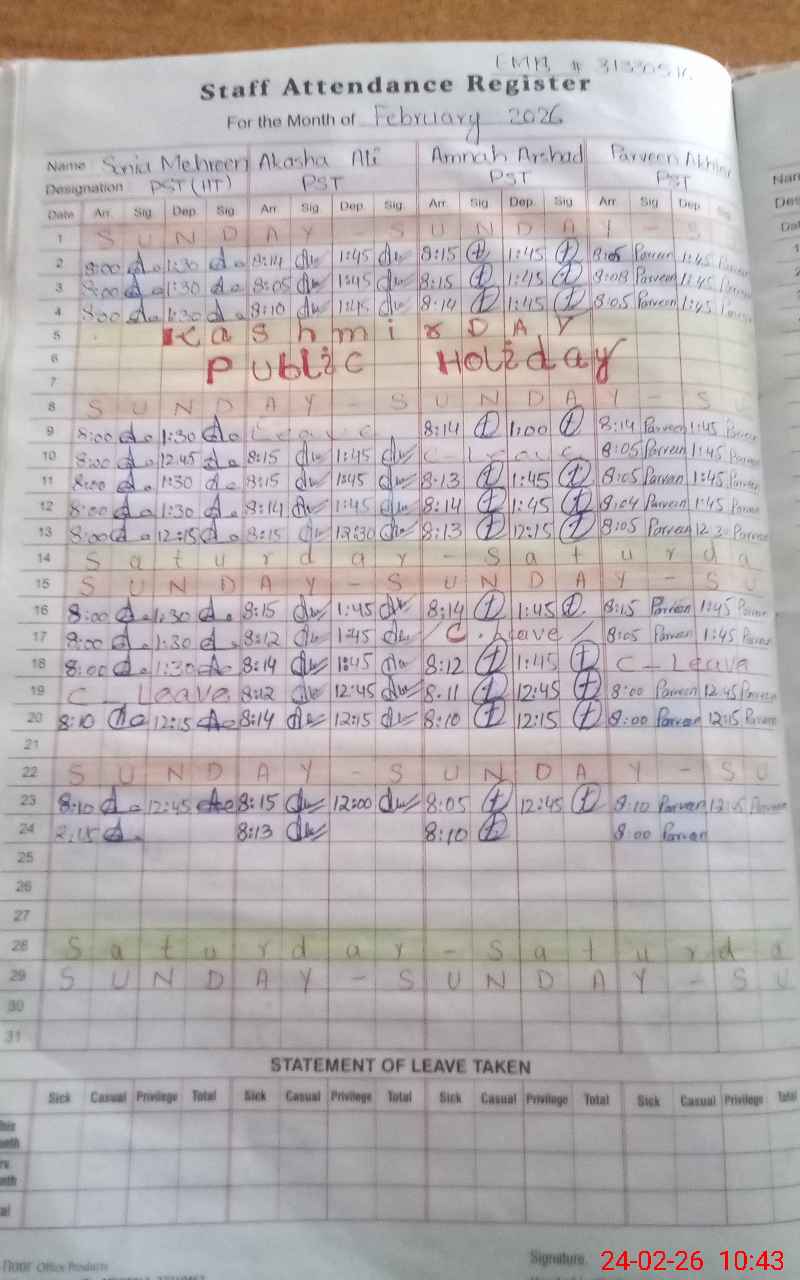 Staff Attendance Register
For the Month of February 2026
Name Sonia Mehreen Akasha Ali Amnah Arshad Parveen Akhtar
Designation PST (IIT) PST PST PST
Date Arr. Sig. Dep. Sig. Arr. Sig. Dep. Sig. Arr. Sig. Dep. Sig. Arr. Sig. Dep. Sig.
1 S U N D A Y - S U N D A Y - S
2 8:00 1:30 8:14 1:45 8:15 1:45 8:05 Parveen 1:45 Parveen
3 8:00 1:30 8:05 1:45 8:15 1:45 8:08 Parveen 1:45 Parveen
4 8:00 1:30 8:10 1:45 8:14 1:45 8:05 Parveen 1:45 Parveen
5 Kashmir DAY
6 Public Holiday
7
8 S U N D A Y - S U N D A Y - S U
9 8:00 1:30 Leave 8:14 1:00 8:14 Parveen 1:45 Parveen
10 8:00 12:45 8:15 1:45 C - Leave 8:05 Parveen 1:45 Parveen
11 8:00 1:30 8:15 1:45 8:13 1:45 8:05 Parveen 1:45 Parveen
12 8:00 1:30 8:14 1:45 8:14 1:45 8:04 Parveen 1:45 Parveen
13 8:00 12:15 8:15 12:30 8:13 12:15 8:05 Parveen Parveen
14 S a t u r d a y - S a t u r d a
15 S U N D A Y - S U N D A Y - S U
16 8:00 1:30 8:15 1:45 8:14 1:45 8:15 Parveen 1:45 Parveen
17 8:00 1:30 8:12 1:45 / C. Leave / 8:05 Parveen 1:45 Parveen
18 8:00 1:30 8:14 1:45 8:12 1:45 C - Leave
19 C - Leave 8:12 12:45 8.11 12:45 8:00 Parveen 12:45 Parveen
20 8:10 12:15 8:14 12:15 8:10 12:15 8:00 Parveen 12:15 Parveen
21
22 S U N D A Y - S U N D A Y - S U
23 8:10 12:45 8:15 12:00 8:05 12:45 8:10 Parveen Parveen
24 8:13 8:10 8:00 Parveen
25
26
27
28 S a t u r d a y - S a t u r d a
29 S U N D A Y - S U N D A Y - S U
30
31
STATEMENT OF LEAVE TAKEN
Sick Casual Privilege Total Sick Casual Privilege Total Sick Casual Privilege Total Sick Casual Privilege Total
Office Products
Signature.
24-02-26 10:43